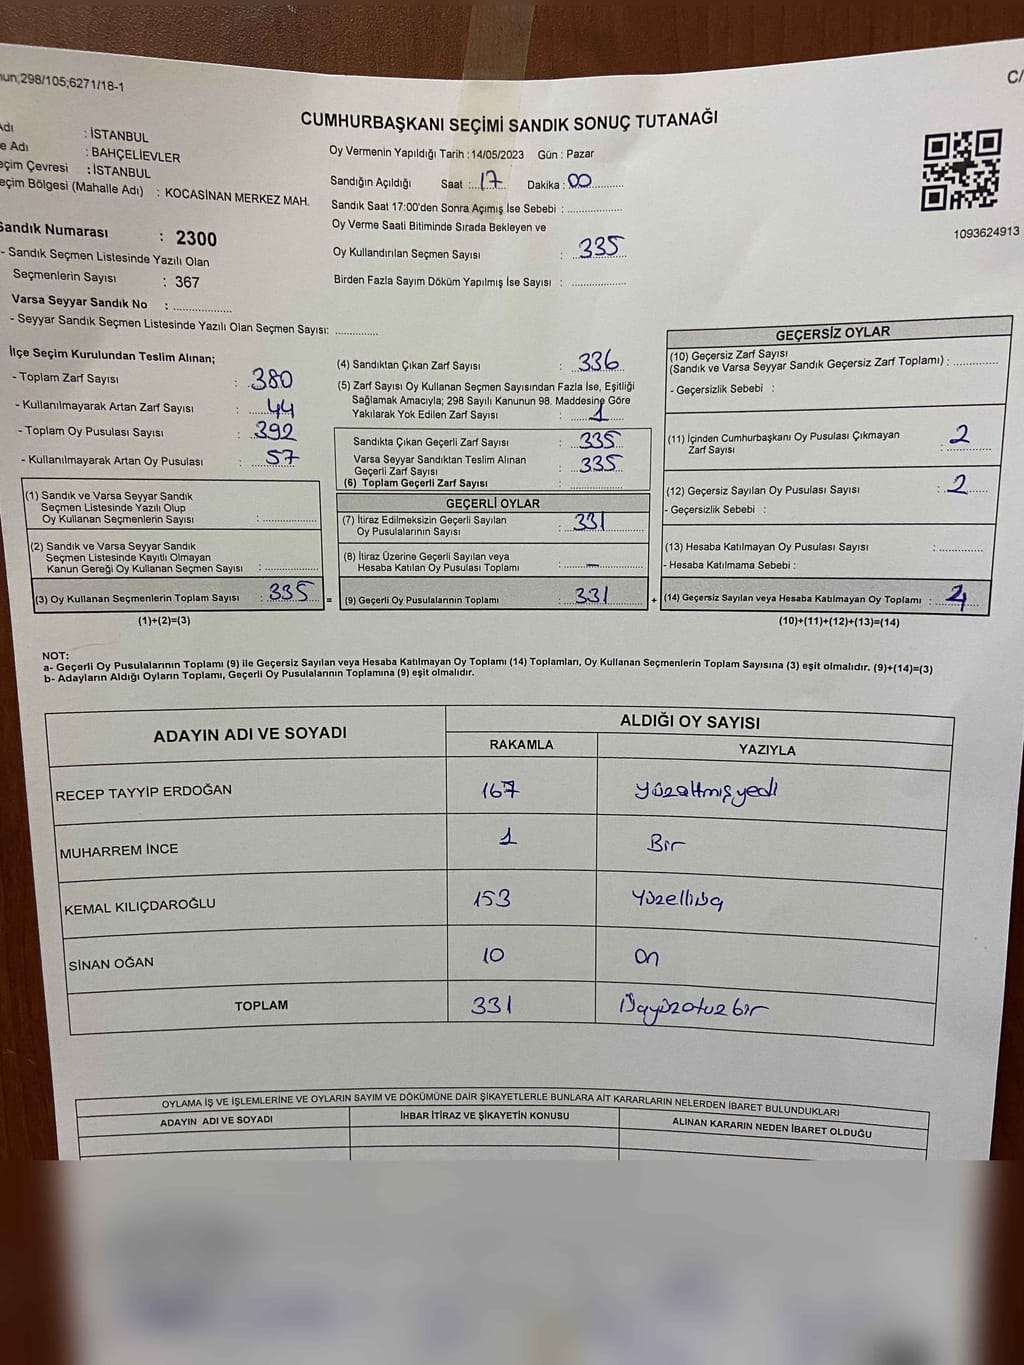 298/105;6271/18-1
C/
CUMHURBAŞKANI SEÇİMİ SANDIK SONUÇ TUTANAĞI
: İSTANBUL
: BAHÇELİEVLER
: İSTANBUL
(Mahalle Adı) : KOCASİNAN MERKEZ MAH.
Sandık Numarası : 2300
- Sandık Seçmen Listesinde Yazılı Olan
Seçmenlerin Sayısı : 367
Varsa Seyyar Sandık No : ..................
- Seyyar Sandık Seçmen Listesinde Yazılı Olan Seçmen Sayısı: .............
Oy Vermenin Yapıldığı Tarih : 14/05/2023 Gün : Pazar
Sandığın Açıldığı Saat : 17 Dakika : 00
Sandık Saat 17:00'den Sonra Açımış İse Sebebi : ..................
Oy Verme Saati Bitiminde Sırada Bekleyen ve
Oy Kullandırılan Seçmen Sayısı : 335
Birden Fazla Sayım Döküm Yapılmış İse Sayısı : ..................
1093624913
İlçe Seçim Kurulundan Teslim Alınan;
- Toplam Zarf Sayısı : 380
- Kullanılmayarak Artan Zarf Sayısı : 44
- Toplam Oy Pusulası Sayısı : 392
- Kullanılmayarak Artan Oy Pusulası : 57
(1) Sandık ve Varsa Seyyar Sandık
Seçmen Listesinde Yazılı Olup
Oy Kullanan Seçmenlerin Sayısı : ..................
(2) Sandık ve Varsa Seyyar Sandık
Seçmen Listesinde Kayıtlı Olmayan
Kanun Gereği Oy Kullanan Seçmen Sayısı : ..................
(3) Oy Kullanan Seçmenlerin Toplam Sayısı : 335
(1)+(2)=(3)
(4) Sandıktan Çıkan Zarf Sayısı : 336
(5) Zarf Sayısı Oy Kullanan Seçmen Sayısından Fazla İse, Eşitliği
Sağlamak Amacıyla; 298 Sayılı Kanunun 98. Maddesine Göre
Yakılarak Yok Edilen Zarf Sayısı : 1
Sandıkta Çıkan Geçerli Zarf Sayısı : 335
Varsa Seyyar Sandıktan Teslim Alınan
Geçerli Zarf Sayısı : 335
(6) Toplam Geçerli Zarf Sayısı : ..................
GEÇERLİ OYLAR
(7) İtiraz Edilmeksizin Geçerli Sayılan
Oy Pusulalarının Sayısı : 331
(8) İtiraz Üzerine Geçerli Sayılan veya
Hesaba Katılan Oy Pusulası Toplamı : —
= (9) Geçerli Oy Pusulalarının Toplamı : 331
GEÇERSİZ OYLAR
(10) Geçersiz Zarf Sayısı
(Sandık ve Varsa Seyyar Sandık Geçersiz Zarf Toplamı) : .............
- Geçersizlik Sebebi :
(11) İçinden Cumhurbaşkanı Oy Pusulası Çıkmayan
Zarf Sayısı : 2
(12) Geçersiz Sayılan Oy Pusulası Sayısı : 2
- Geçersizlik Sebebi :
(13) Hesaba Katılmayan Oy Pusulası Sayısı : .............
- Hesaba Katılmama Sebebi :
+ (14) Geçersiz Sayılan veya Hesaba Katılmayan Oy Toplamı : 4
(10)+(11)+(12)+(13)=(14)
NOT:
a- Geçerli Oy Pusulalarının Toplamı (9) ile Geçersiz Sayılan veya Hesaba Katılmayan Oy Toplamı (14) Toplamları, Oy Kullanan Seçmenlerin Toplam Sayısına (3) eşit olmalıdır. (9)+(14)=(3)
b- Adayların Aldığı Oyların Toplamı, Geçerli Oy Pusulalarının Toplamına (9) eşit olmalıdır.
ADAYIN ADI VE SOYADI
ALDIĞI OY SAYISI
RAKAMLA YAZIYLA
RECEP TAYYİP ERDOĞAN 167 Yüzaltmışyedi
MUHARREM İNCE 1 Bir
KEMAL KILIÇDAROĞLU 153 Yüzelliüç
SİNAN OĞAN 10 On
TOPLAM 331 Üçyüzotuzbir
OYLAMA İŞ VE İŞLEMLERİNE VE OYLARIN SAYIM VE DÖKÜMÜNE DAİR ŞİKAYETLERLE BUNLARA AİT KARARLARIN NELERDEN İBARET BULUNDUKLARI
ADAYIN ADI VE SOYADI İHBAR İTİRAZ VE ŞİKAYETİN KONUSU ALINAN KARARIN NEDEN İBARET OLDUĞU